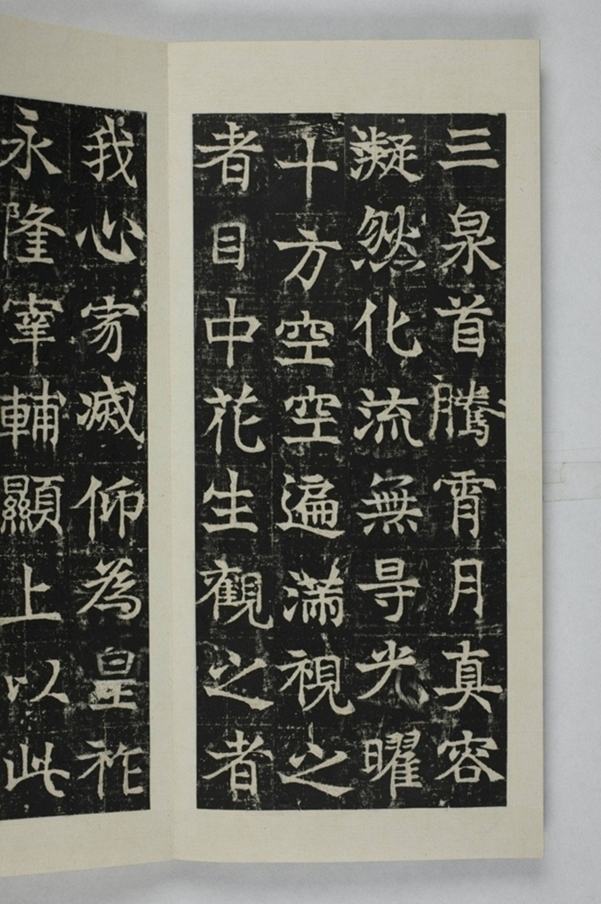 三泉首騰霄月真容
凝然化流無导光曜
十方空空遍滿視之
者目中花生觀之者
我心家滅仰為皇祚
永隆宰輔顯上以此